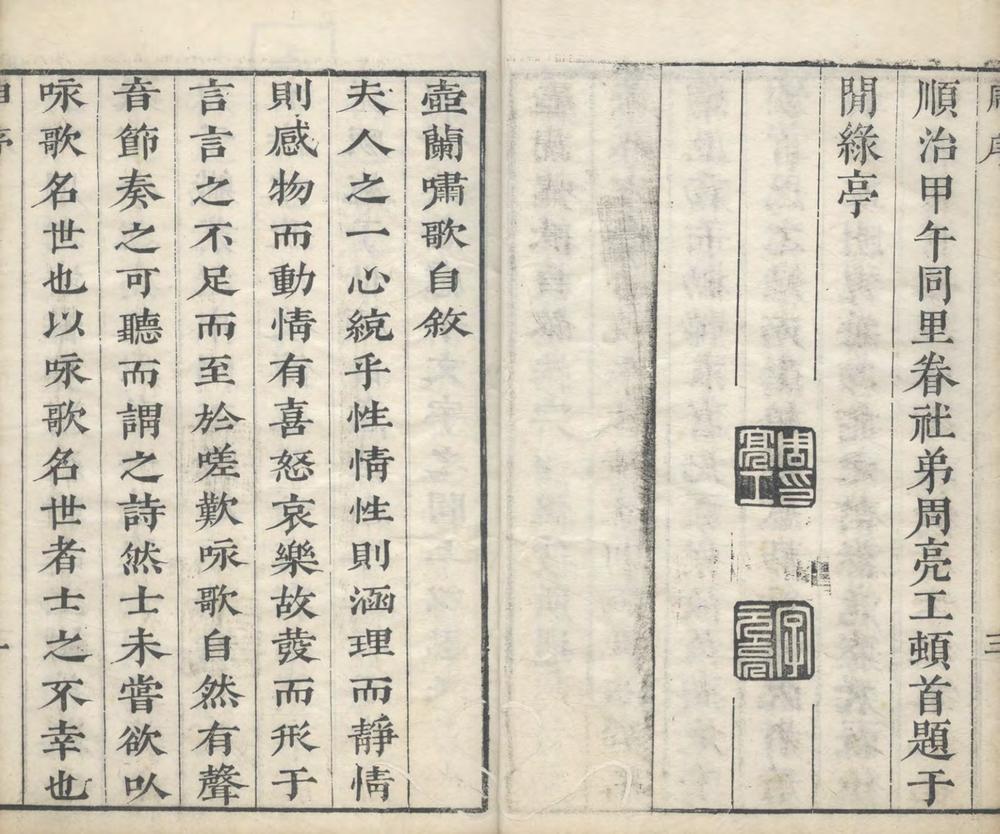 順治甲午同里眷社弟周亮工頓首題于
閒綠亭
周亮工印
字元亮
壺蘭嘯歌自敘
夫人之一心統乎性情性則涵理而靜情
則感物而動情有喜怒哀樂故發而形于
言言之不足而至於嗟歎咏歌自然有聲
音節奏之可聽而謂之詩然士未嘗欲以
咏歌名世也以咏歌名世者士之不幸也